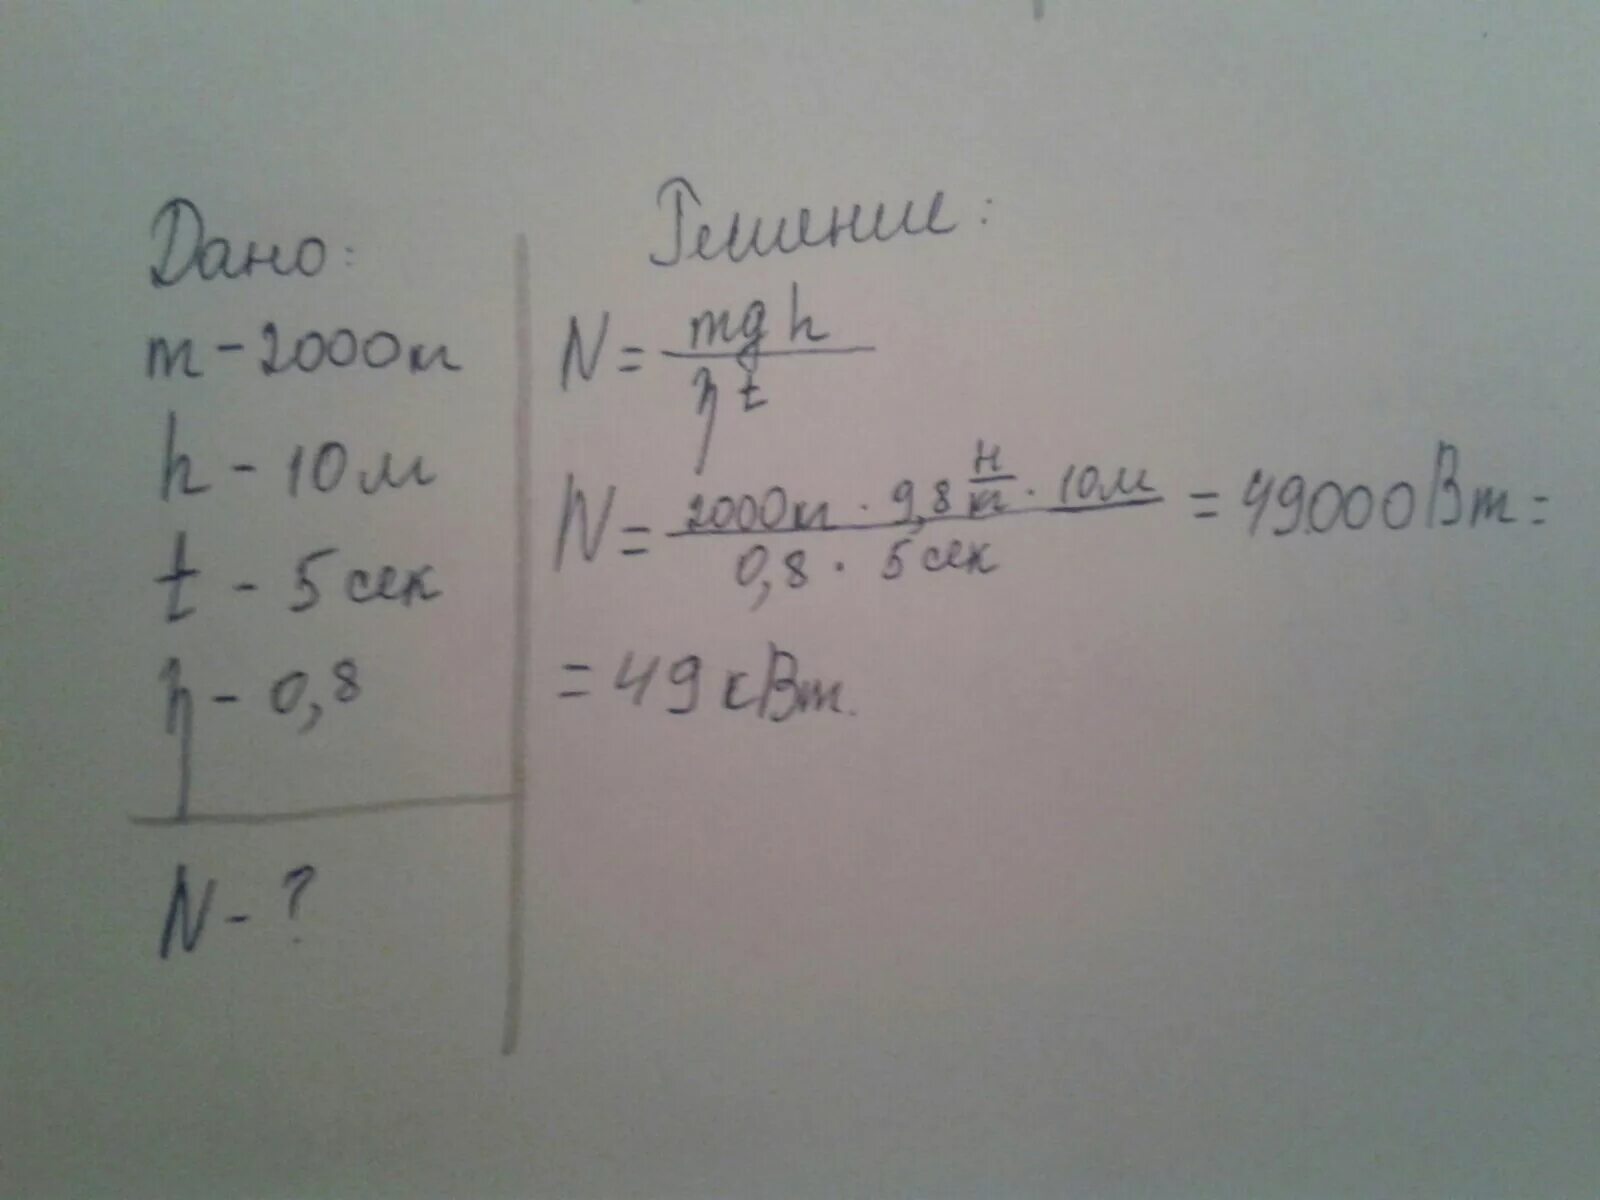 Дано:
m - 2000кг
h - 10м
t - 5 сек
η - 0,8
N - ?
Решение:
N = mgh / ηt
N = 2000кг · 9,8 Н/кг · 10м / 0,8 · 5 сек = 49000 Вт =
= 49 кВт.